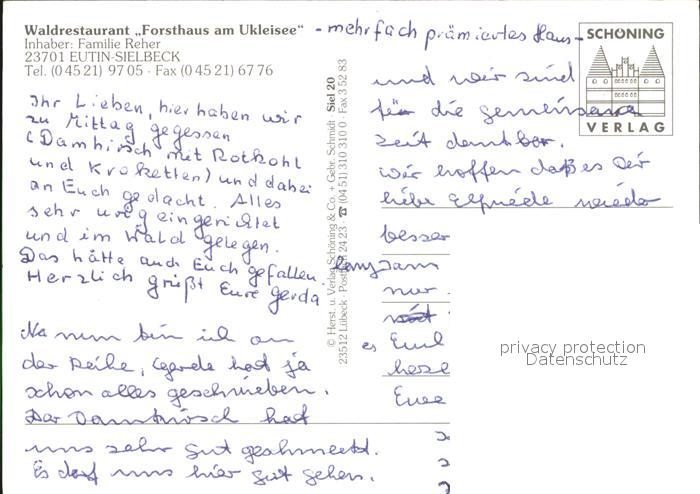 Waldrestaurant „Forsthaus am Ukleisee“
Inhaber: Familie Reher
23701 EUTIN-SIELBECK
Tel. (0 45 21) 97 05 · Fax (0 45 21) 67 76
- mehrfach prämiertes Haus -
SCHÖNING
VERLAG
Ihr Lieben, hier haben wir
zu Mittag gegessen
(Damhirsch mit Rotkohl
und Kroketten) und dabei
an Euch gedacht. Alles
sehr urig eingerichtet
und im Wald gelegen.
Das hätte auch Euch gefallen.
Herzlich grüßt Eure Gerda
Na nun bin ich an
der Reihe, Gerda hat ja
schon alles geschrieben.
Der Damhirsch hat
uns sehr gut geschmeckt.
Es darf uns hier gut gehen.
© Herst. u. Verlag Schöning & Co. + Gebr. Schmidt · Siel 20
23512 Lübeck · Postfach 24 23 · ☎ (04 51) 310 310 0 · Fax 3 52 83
und wir sind
für die gemeinsame
Zeit dankbar.
Wir hoffen daß es Dir
liebe Elfriede wieder
besser
langsam
nur
es
Eure
privacy protection
Datenschutz